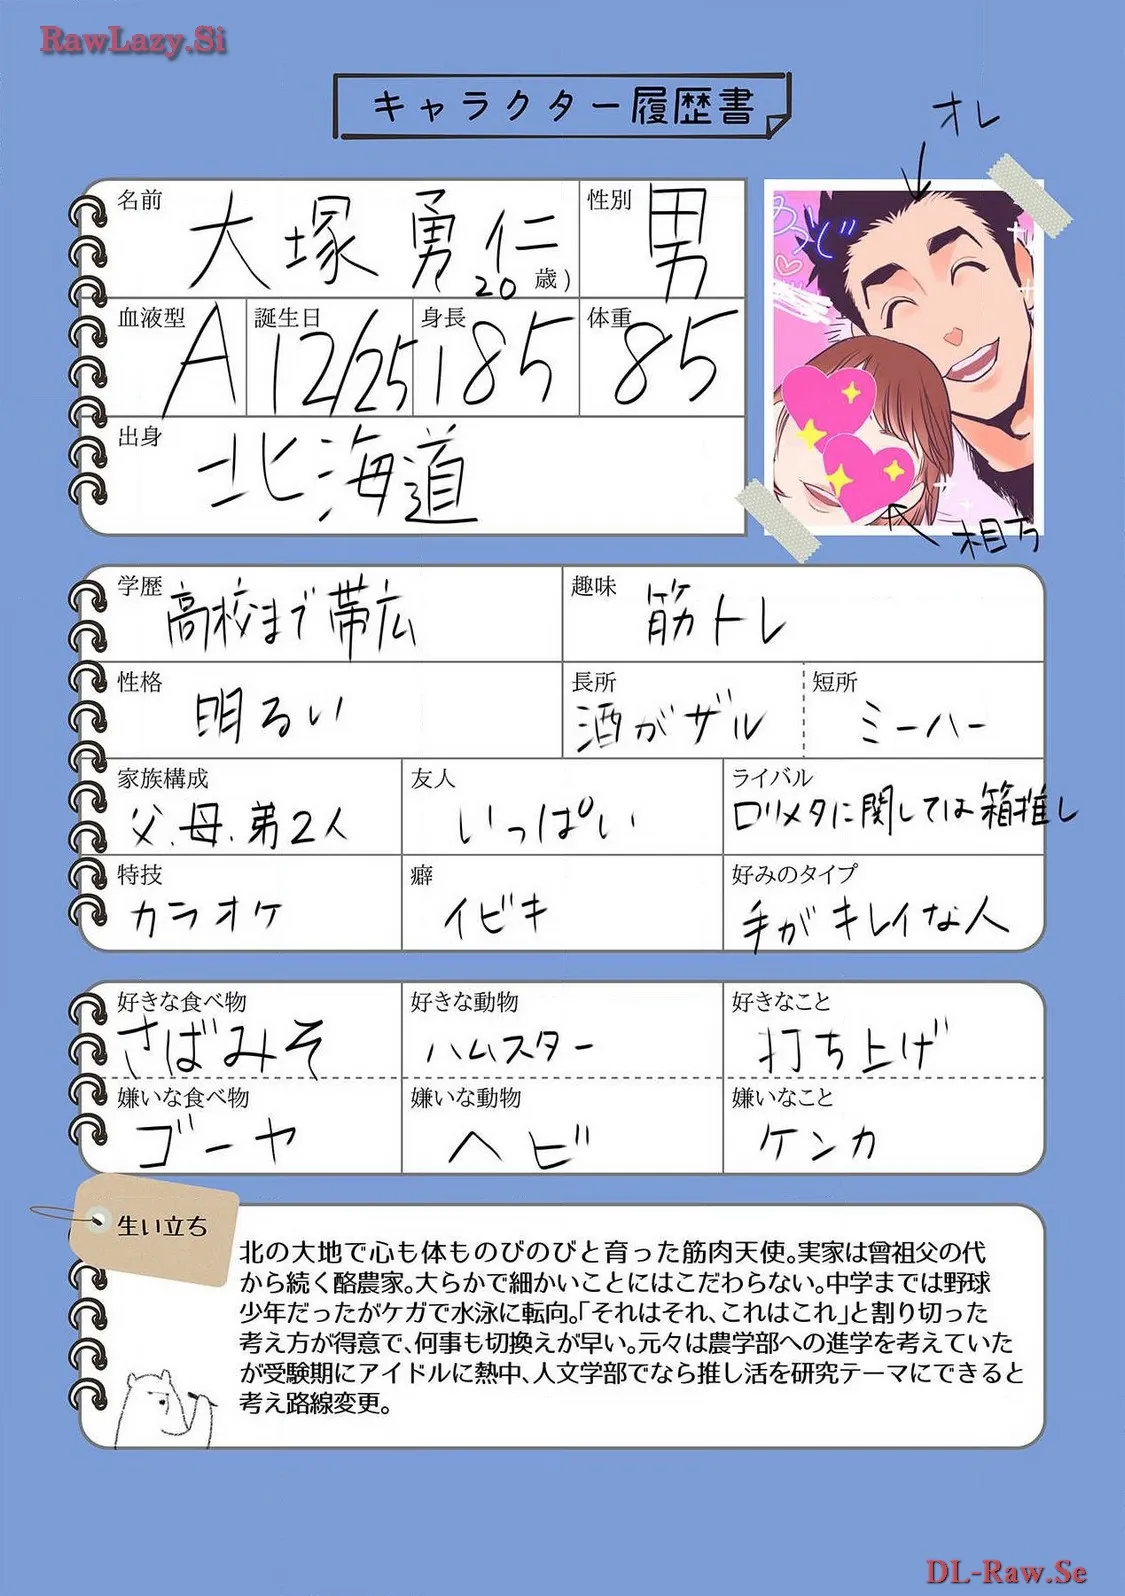 RawLazy.Si
キャラクター履歴書
オレ
名前
大塚勇仁
20歳)
性別
男
めっじ
血液型
A
誕生日
12/25
身長
185
体重
85
出身
北海道
相方
学歴
高校まで帯広
趣味
筋トレ
性格
明るい
長所
酒がザル
短所
ミーハー
家族構成
父、母、弟2人
友人
いっぱい
ライバル
ロリメタに関しては箱推し
特技
カラオケ
癖
イビキ
好みのタイプ
手がキレイな人
好きな食べ物
さばみそ
好きな動物
ハムスター
好きなこと
打ち上げ
嫌いな食べ物
ゴーヤ
嫌いな動物
ヘビ
嫌いなこと
ケンカ
生い立ち
北の大地で心も体ものびのびと育った筋肉天使。実家は曾祖父の代
から続く酪農家。大らかで細かいことにはこだわらない。中学までは野球
少年だったがケガで水泳に転向。「それはそれ、これはこれ」と割り切った
考え方が得意で、何事も切換えが早い。元々は農学部への進学を考えていた
が受験期にアイドルに熱中、人文学部でなら推し活を研究テーマにできると
考え路線変更。
DL-Raw.Se